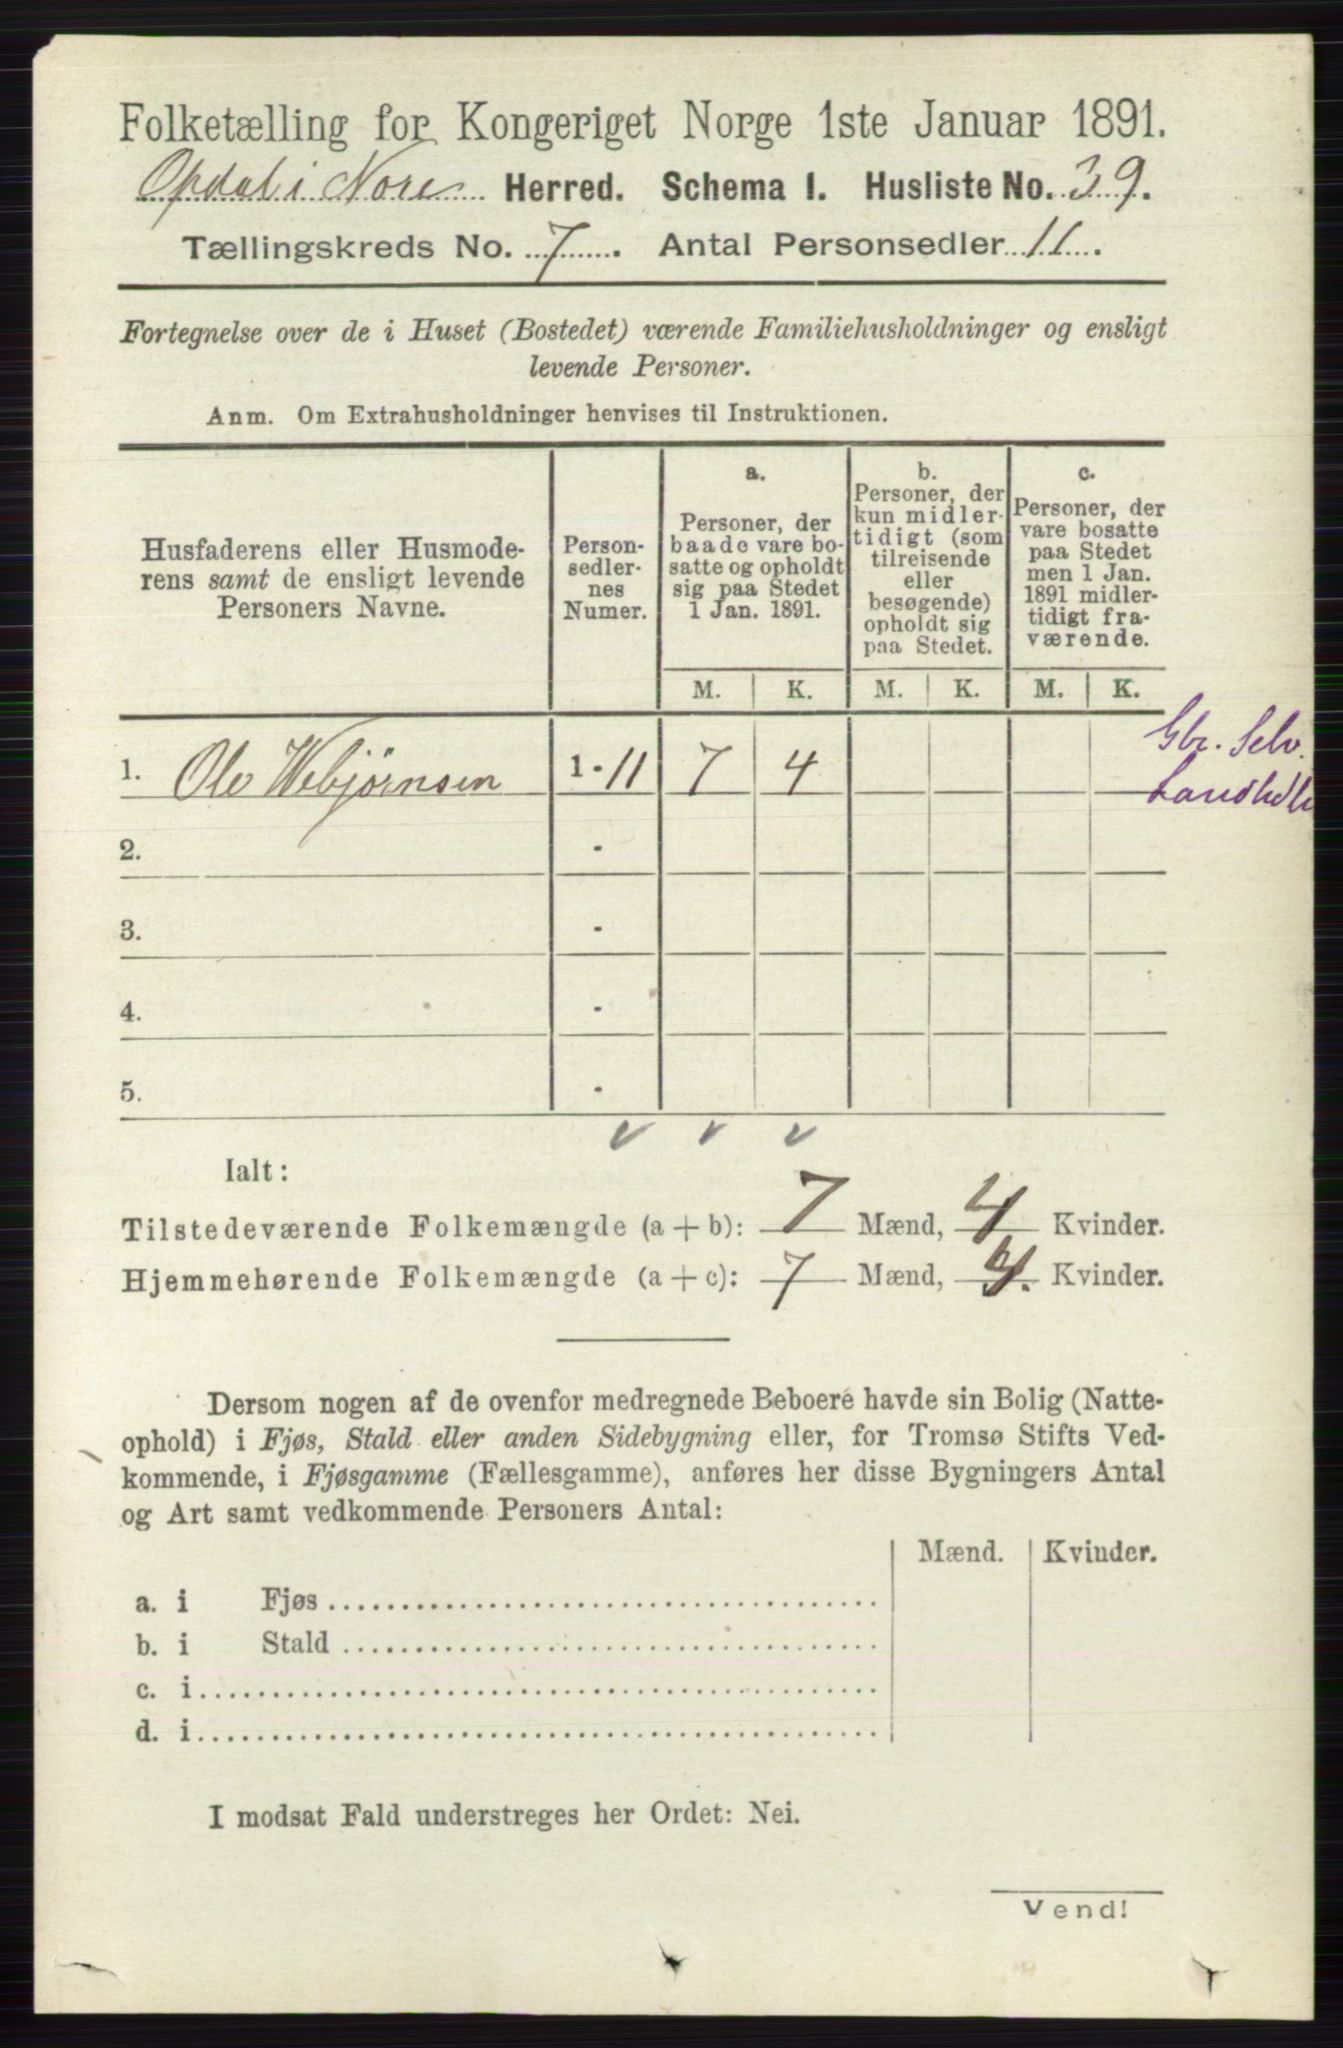 Folketælling for Kongeriget Norge 1ste Januar 1891.
Opdal i Nore Herred. Schema I. Husliste No. 39.
Tællingskreds No. 7. Antal Personsedler 11.
Fortegnelse over de i Huset (Bostedet) værende Familiehusholdninger og ensligt
levende Personer.
Anm. Om Extrahusholdninger henvises til Instruktionen.
Husfaderens eller Husmode-
rens samt de ensligt levende
Personers Navne.
Person-
sedler-
nes
Numer.
a.
Personer, der
baade vare bo-
satte og opholdt
sig paa Stedet
1 Jan. 1891.
b.
Personer, der
kun midler-
tidigt (som
tilreisende
eller
besøgende)
opholdt sig
paa Stedet.
c.
Personer, der
vare bosatte
paa Stedet
men 1 Jan.
1891 midler-
tidigt fra-
værende.
M. K. M. K. M. K.
1. Ole Webjørnsen 1 - 11 7 4
Gbr. Selv.
2. -
3. -
4. -
5. -
Ialt:
Tilstedeværende Folkemængde (a + b): 7 Mænd, 4 Kvinder.
Hjemmehørende Folkemængde (a + c): 7 Mænd, 4. Kvinder.
Dersom nogen af de ovenfor medregnede Beboere havde sin Bolig (Natte-
ophold) i Fjøs, Stald eller anden Sidebygning eller, for Tromsø Stifts Ved-
kommende, i Fjøsgamme (Fællesgamme), anføres her disse Bygningers Antal
og Art samt vedkommende Personers Antal:
Mænd. Kvinder.
a. i Fjøs
b. i Stald
c. i
d. i
I modsat Fald understreges her Ordet: Nei.
Vend!